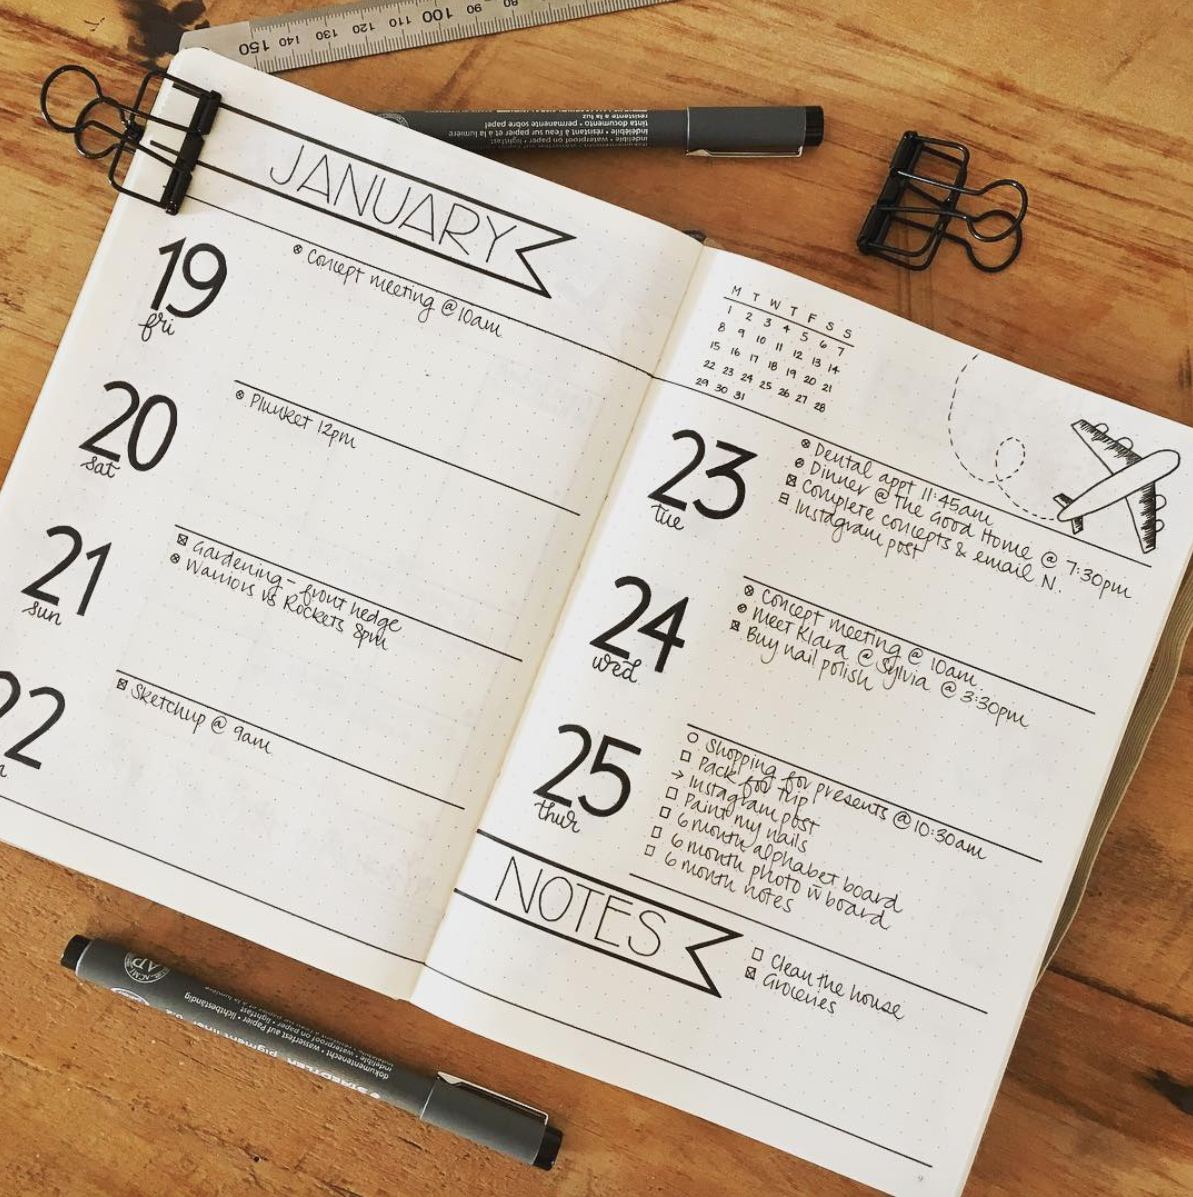 150 140 130 120 110 100 90 80
indélébile • résistant à l'eau sur papier et à la lumière
tinta documento • permanente sobre papel
resistente a la luz
JANUARY
19
fri
Concept meeting @ 10am
20
sat
Plunket 12pm
21
sun
Gardening - front hedge
Warriors vs Rockets 8pm
22
Sketchup @ 9am
M T W T F S S
1 2 3 4 5 6 7
8 9 10 11 12 13 14
15 16 17 18 19 20 21
22 23 24 25 26 27 28
29 30 31
23
tue
Dental appt 11:45am
Dinner @ The Good Home @ 7:30pm
Complete concepts & email N.
Instagram post
24
wed
Concept meeting @ 10am
Meet Klara @ Sylvia @ 3:30pm
Buy nail polish
25
thur
Shopping for presents @ 10:30am
Pack for trip
→ Instagram post
Paint my nails
6 month alphabet board
6 month photo w board
6 month notes
NOTES
Clean the house
Groceries
9
STAEDTLER pigment liner
dokumentenecht • wasserfest auf Papier • lichtbeständig
indelible • waterproof on paper • lightfast